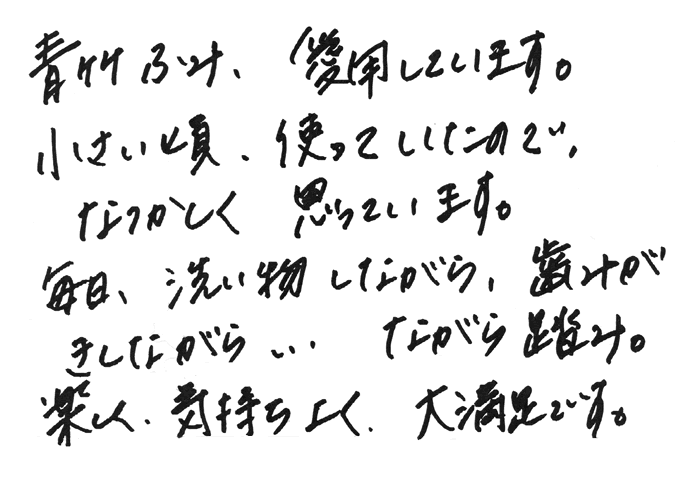 青竹ふみ、愛用しています。
小さい頃、使っていたので、
なつかしく 思っています。
毎日、洗い物しながら、歯みが
きしながら… ながら踏み。
楽しく、気持ちよく、大満足です。